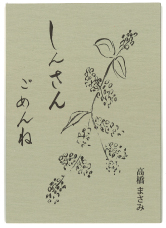 しんさん
ごめんね
高橋 まさみ